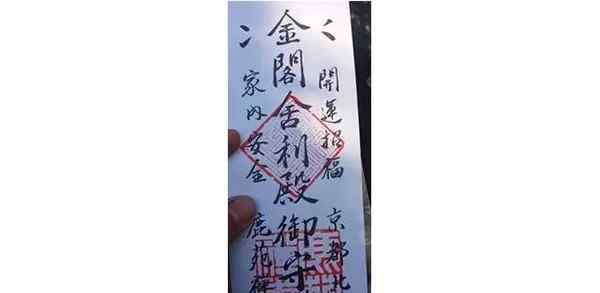 開運招福 京都北
金閣舎利殿御守
家内安全 鹿苑